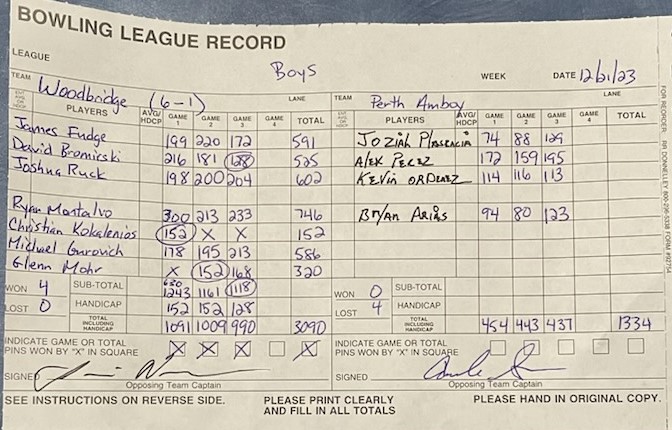 BOWLING LEAGUE RECORD
LEAGUE Boys WEEK DATE 12/21/23
TEAM Woodbridge (6-1) LANE TEAM Perth Amboy LANE
PLAYERS AVG/HDCP GAME 1 GAME 2 GAME 3 GAME 4 TOTAL PLAYERS AVG/HDCP GAME 1 GAME 2 GAME 3 GAME 4 TOTAL
James Fudge 199 220 172 591 Joziah 74 88 129
David 216 181 128 525 Alex Perez 172 159 195
Joshua Ruck 198 200 204 602 Kevin Ordenez 114 116 113
Ryan Montalvo 300 213 233 746 Bryan Arias 94 80 123
Christian Kokalenios 152 X X 152
Michael Gurovich 178 195 213 586
Glenn Mohr X 152 168 320
WON 4 SUB-TOTAL 1243 1161 118 WON 0 SUB-TOTAL
LOST 0 HANDICAP 152 152 128 LOST 4 HANDICAP
TOTAL INCLUDING HANDICAP 1091 1009 990 3090 TOTAL INCLUDING HANDICAP 454 443 437 1334
INDICATE GAME OR TOTAL PINS WON BY "X" IN SQUARE X X X X INDICATE GAME OR TOTAL PINS WON BY "X" IN SQUARE
SIGNED SIGNED
Opposing Team Captain Opposing Team Captain
SEE INSTRUCTIONS ON REVERSE SIDE. PLEASE PRINT CLEARLY AND FILL IN ALL TOTALS PLEASE HAND IN ORIGINAL COPY.